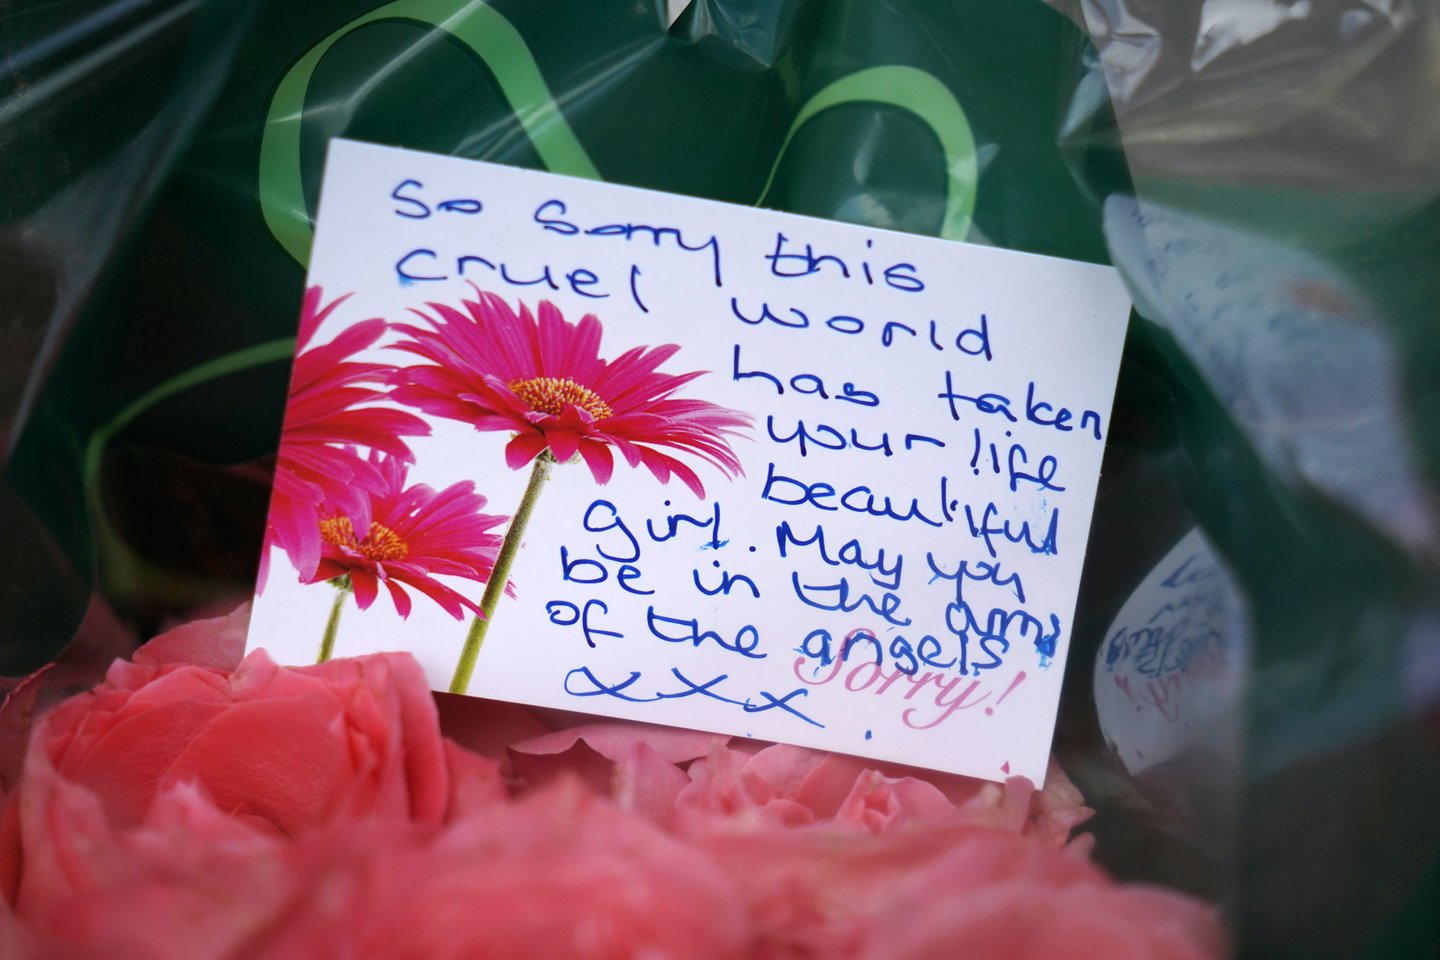 So Sorry this
cruel world
has taken
your life
beautiful
Girl. May you
be in the arms
of the angels
xxx
Sorry!